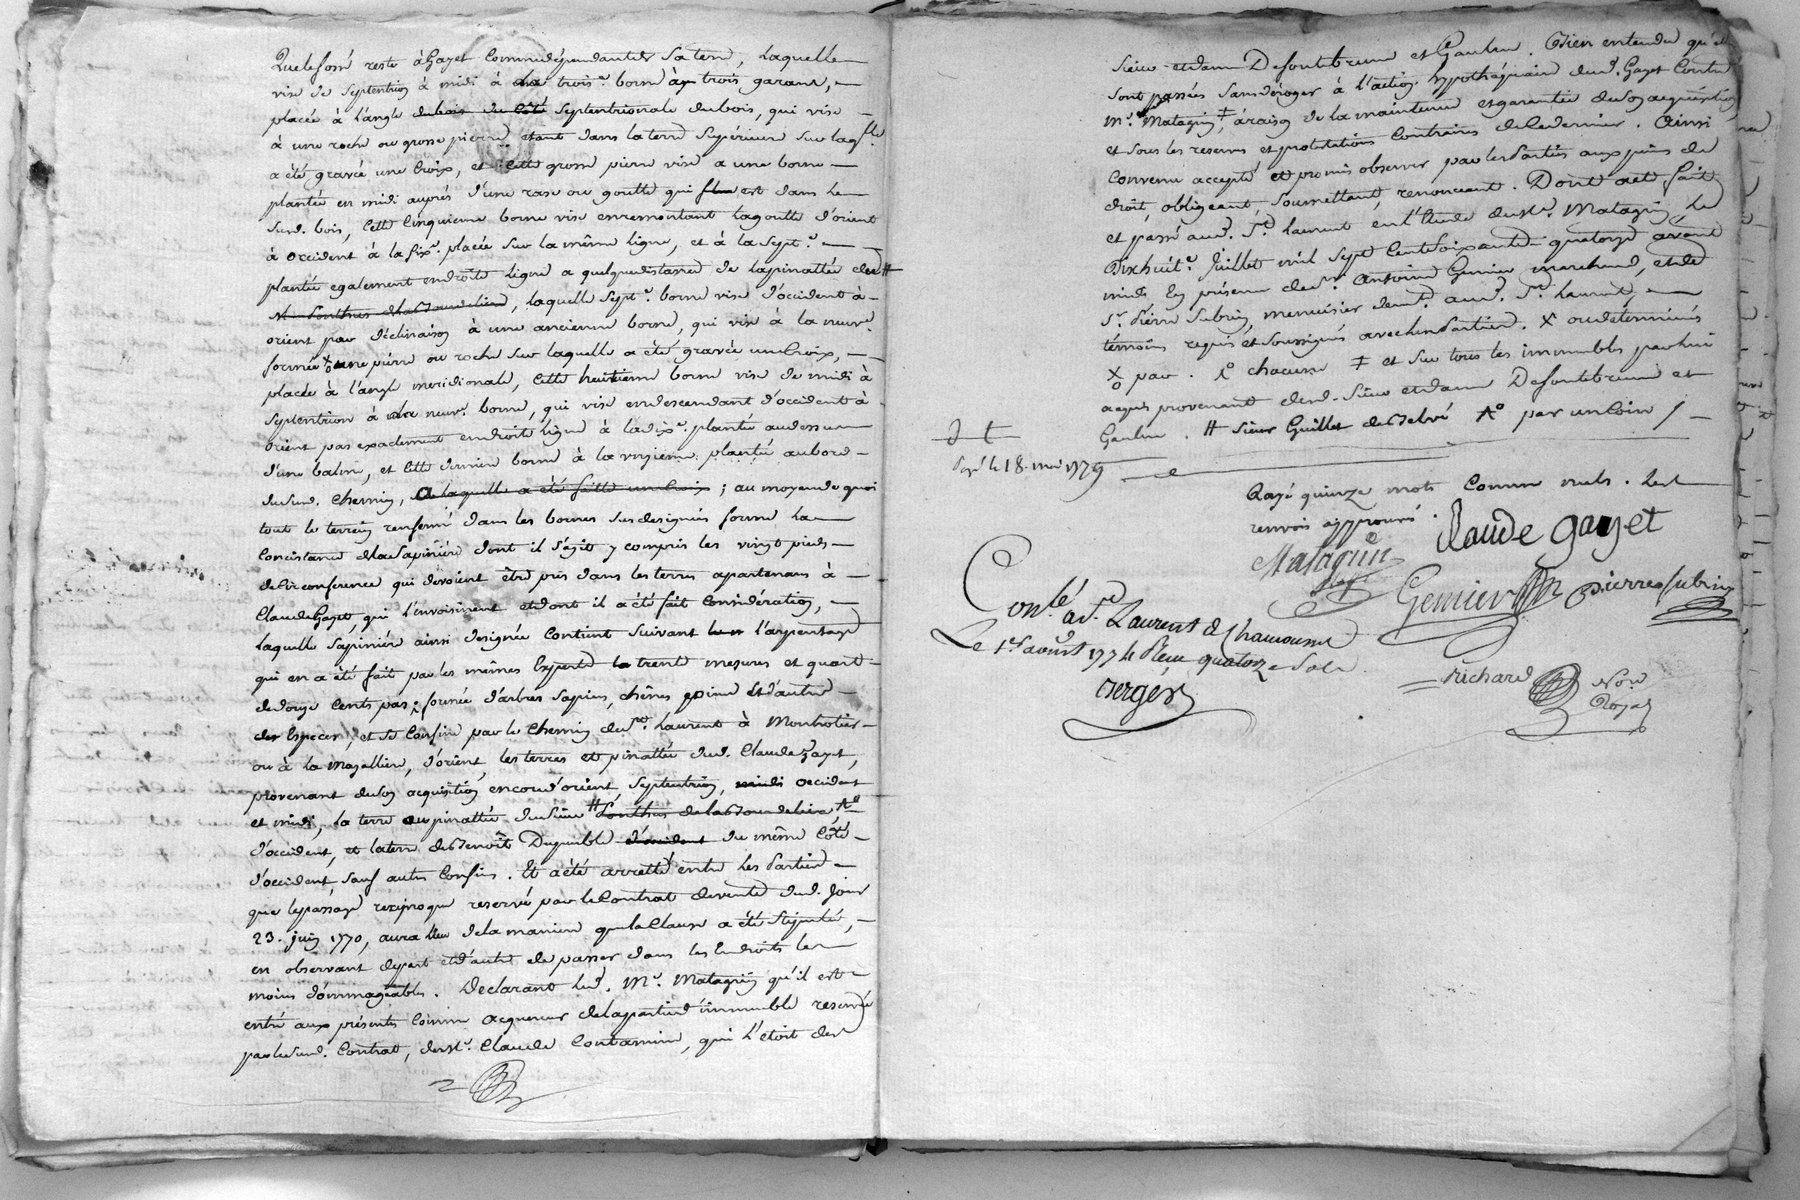 Que le fossé reste à Gayet comme dépendant de sa terre, laquelle
vise de septentrion à midi à la trois.e borne à trois garans,
placée à l'angle du bois du côté septentrionale du bois, qui vise
à une roche ou grosse pierre étant dans la terre supérieure sur laq.lle
a été gravée une Croix, et cette grosse pierre vise a une borne
plantée en midi auprès d'une rase ou goutte qui est dans le
susd. bois, cette cinquieme borne vise en remontant la goutte d'orient
à occident à la six.e placée sur la même ligne, et à la sept.e
plantée egalement en droite ligne a quelque distance de la pinattée du #
laquelle sept.e borne vise d'occident à
orient par déclinaison à une ancienne borne, qui vise à la neuv.e
formée X une pierre ou roche sur laquelle a été gravée une Croix,
placée à l'angle meridionale, cette huitieme borne vise de midi à
septentrion à la neuv.e borne, qui vise en descendant d'occident à
orient pas exactement en droite ligne à la dix.e plantée au dessus
d'une balme, et cette derniere borne à la onzieme plantée au bord
du sud. Chemin, a laquelle a été faitte une Croix ; au moyen de quoi
tout le terrein renfermé dans les bornes sus designées forme la
Consistance de la Sapinière dont il s'agit y compris les vingt pieds
de circonference qui devoient être pris dans les terres apartenans à
Claude Gayet, qui l'envoisinent et dont il a été fait considération,
laquelle sapinière ainsi designée contient suivant l'arpentage
qui en a été fait par les mêmes Experts trente mesures et quart
de douze cents pas ; formée d'arbres sapins, chênes, pins et d'autres
des Especes, et se Confine par le Chemin de St. Laurent à Montrotier
ou à la Magallien, d'orient, les terres et pinattée dud. Claude Gayet,
provenant de son acquisition encore d'orient, septentrion, midi occident
et midi, la terre ou pinattée du Sieur #
d'occident, et la terre de Benoît Dupuible d'occident du même côté
d'occident, sauf autres Confins. Et a été arretté entre les Parties
que le passage reciproque reservé par le Contrat de vente dud. jour
23. juin 1770, aura lieu de la maniere que la Clause a été stipulée,
en observant de part et d'autre de passer dans les Endroits les
moins d'ommageables. Declarant led. M.e Matagrin qu'il est
entré aux présentes comme acquereur de la partie d'immeuble reservée
par le susd. Contrat, de M.e Claude Contamine, qui l'étoit des
Sieur et dame Desfontbrune et Gaulne. Bien entendu qu'elles
sont passées sans déroger à l'action hypothéquaire dud. Gayet Contre
M.e Matagrin, ‡ à raison de la maintenue et garantie de son acquisition
et sous les reserves et protestations Contraires de ce dernier. Ainsi
convenu accepté et promis observer par les Parties aux peines de
droit, obligeant, soumettant, renonceant. Dont acte fait
et passé aud. St. Laurent en l'Etude de M.e Matagrin le
dixhuit.e Juillet mil sept cents soixante quatorze avant
midi En présence de S.r Antoine Gemier marchand, et de
S.r Pierre Subrin, menuisier demt. aud. St. Laurent,
témoins requis et soussignés avec les Parties. X ou determinés
X par. chacune ‡ et sur tous les immeubles par lui
acquis provenant desd. Sieur et dame Desfontbrune et
Gaulne. # Sieur Guillet par un Coin /
Payé le 18. mai 1779
Rayé quinze mots comme nuls. Les
renvois approuvés.
Claude Gayet
Matagrin
Gemier
Pierre Subrin
Conlé à St. Laurent de Chamousset
Le 1er aoust 1774 Reçu quatorze Sols
Berger
Richard
Not.re
Royal